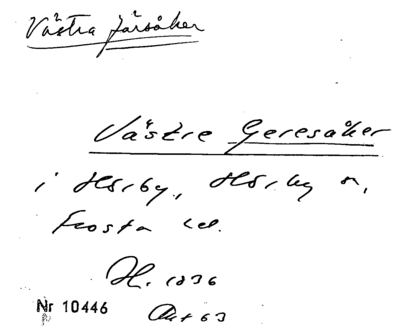 Västra Järsåker
Västre Geresåker
i Hörby, Hörby sn,
Frosta hd.
H. 1836
Nr 10446
Akt 63